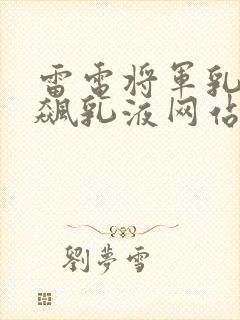 雷電将軍乳
飆乳液网佔
劉夢雪